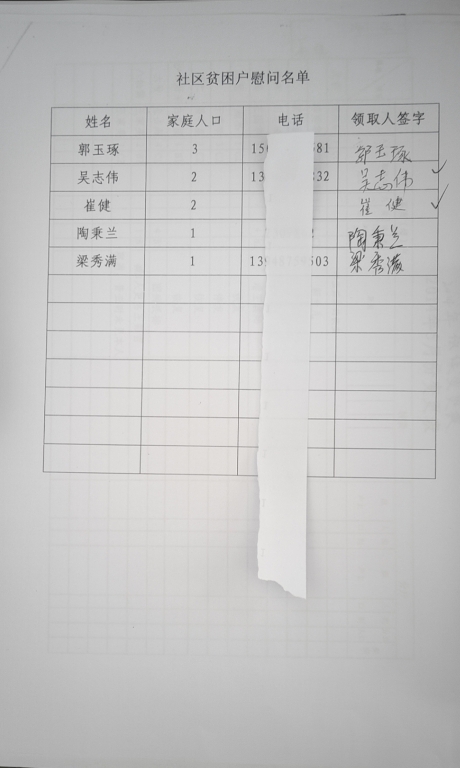 社区贫困户慰问名单
姓名 家庭人口 电话 领取人签字
郭玉琢 3 15 81 郭玉琢
吴志伟 2 13 332 吴志伟 ✓
崔健 2 崔健 ✓
陶秉兰 1 陶秉兰
梁秀满 1 13 503 梁秀满